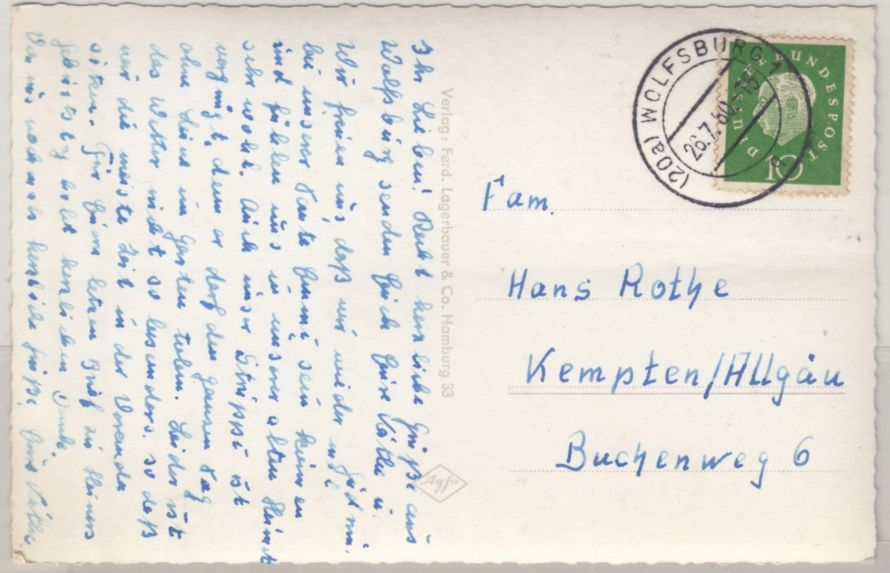 Ihr Lieben! Recht herzliche Grüße aus
Wolfsburg senden Euch Eure Käthe u.
Wir freuen uns, daß wir wieder
bei unserer Tante sein können
und fühlen uns in unserer alten Heimat
sehr wohl. Auch unser Struppi ist
vergnügt, denn er darf den ganzen Tag
ohne Leine im Garten toben. Leider ist
das Wetter nicht so besonders, so daß
wir die meiste Zeit in der Veranda
sitzen. Für Euren letzten Brief zu
Geburtstag habt herzlichen Dank.
Von uns nochmals herzliche Grüße Eure Käthe
Verlag: Ferd. Lagerbauer & Co. Hamburg 33
Agfa
(20a) WOLFSBURG
26.7.60
DEUTSCHE BUNDESPOST
10
Fam.
Hans Rothe
Kempten/Allgäu
Buchenweg 6